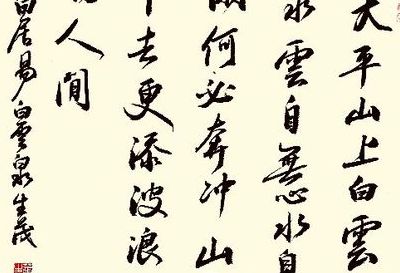 天平山上白雲
泉雲自無心水自
何必奔冲山
下去更添波浪
向人間
白居易白雲泉生茂